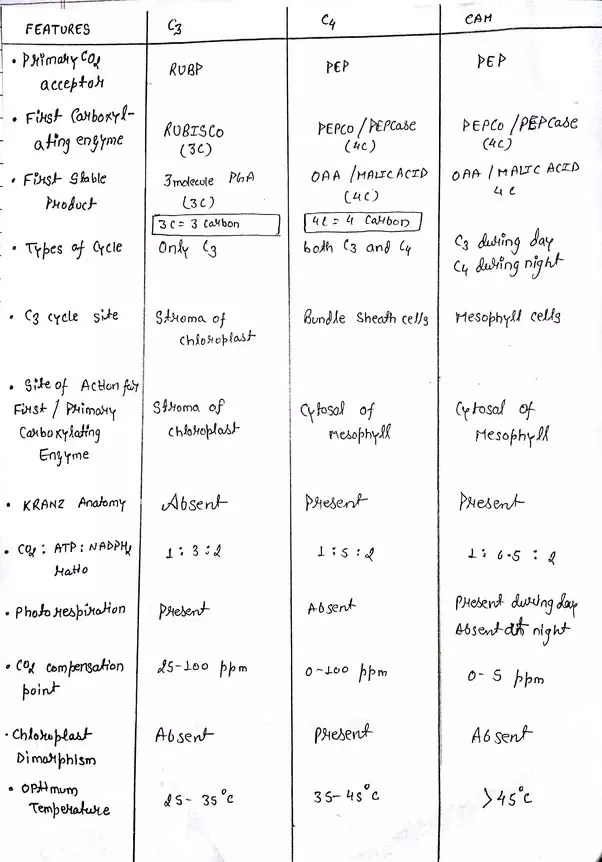 FEATURES C3 C4 CAM
• Primary CO2 acceptor RUBP PEP PEP
• First Carboxyl-ating enzyme RUBISCO (3C) PEPCO/PEPCase (4C) PEPCO/PEPCase (4C)
• First Stable Product 3 molecule PGA (3C) OAA/MALIC ACID (4C) OAA/MALIC ACID 4C
3C = 3 Carbon 4C = 4 Carbon
• Types of Cycle Only C3 both C3 and C4 C3 during day C4 during night
• C3 cycle site Stroma of chloroplast Bundle Sheath cells Mesophyll cells
• Site of Action for First / Primary Carboxylating Enzyme Stroma of chloroplast Cytosal of Mesophyll Cytosal of Mesophyll
• KRANZ Anatomy Absent Present Present
• CO2 : ATP : NADPH2 Ratio 1 : 3 : 2 1 : 5 : 2 1 : 6.5 : 2
• Photorespiration Present Absent Present during day Absent at night
• CO2 compensation point 25-100 ppm 0-100 ppm 0-5 ppm
• Chloroplast Dimorphism Absent Present Absent
• Optimum Temperature 25-35°C 35-45°C >45°C